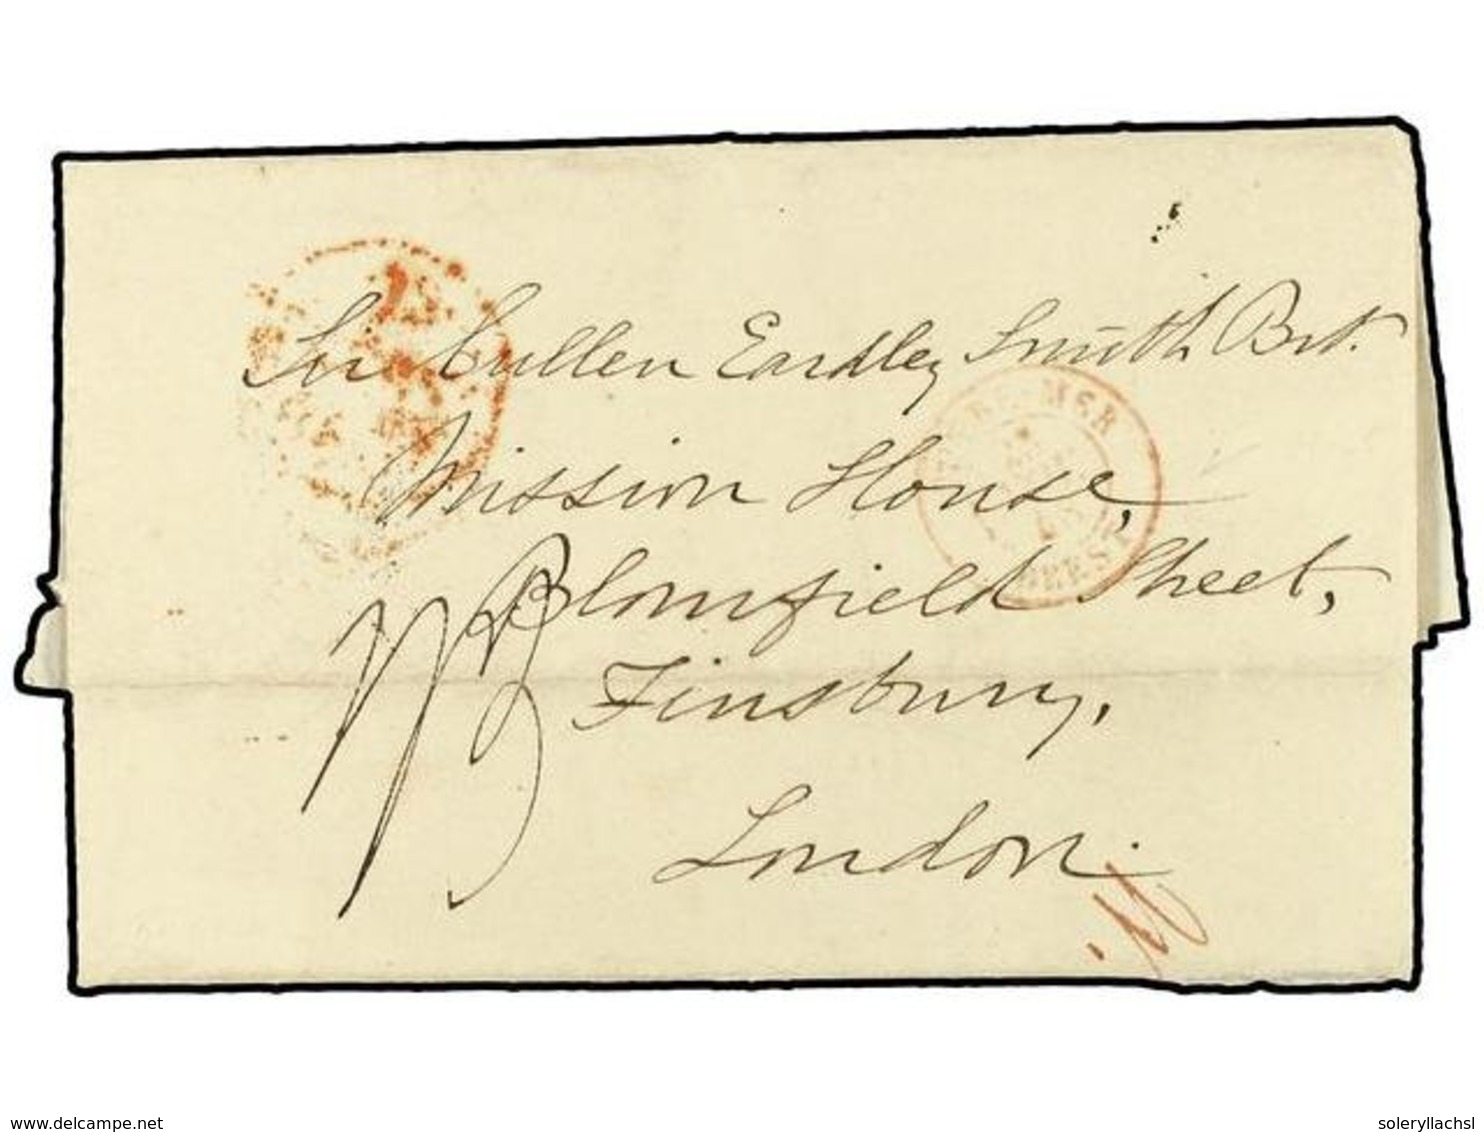 Sir Cullen Eardley Smith Brt.
Mission House,
Blomfield Street,
Finsbury,
London.
OUTRE-MER
www.delcampe.net
soleryllachsl